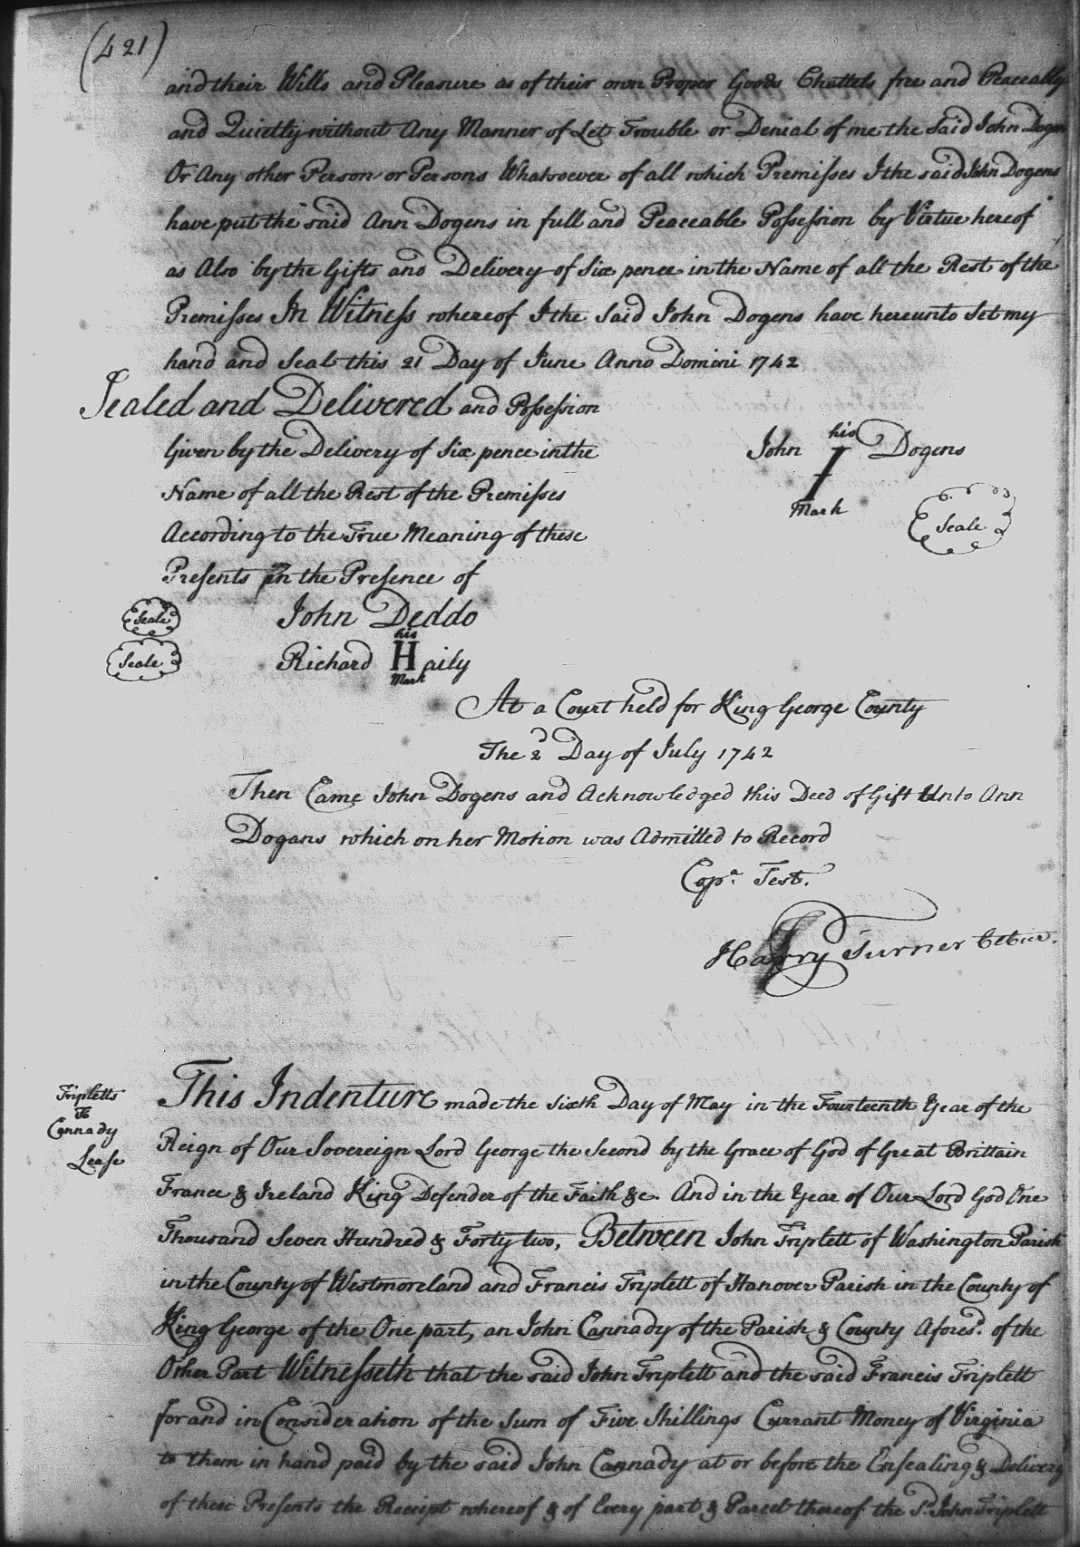 (421)
and their Wills and Pleasure as of their own Proper Goods Chattels free and Peaceably
and Quietly without Any Manner of Let Trouble or Denial of me the Said John Dogens
Or Any other Person or Persons Whatsoever of all which Premisses I the said John Dogens
have put the said Ann Dogens in full and Peaceable Possession by Virtue hereof
as Also by the Gifts and Delivery of Six pence in the Name of all the Rest of the
Premisses In Witness whereof I the Said John Dogens have hereunto Set my
hand and Seal this 21 Day of June Anno Domini 1742
Sealed and Delivered and Possession
Given by the Delivery of Six pence in the
Name of all the Rest of the Premisses
According to the True Meaning of these
Presents In the Presence of
John his I Mark Dogens
Seale
Seale John Deddo
Seale Richard his H Mark aily
At a Court held for King George County
The 2d Day of July 1742
Then Came John Dogens and Acknowledged this Deed of Gift Unto Ann
Dogans which on her Motion was Admitted to Record
Copa. Test.
Harry Turner
Tripletts
To
Cannady
Lease
This Indenture made the Sixth Day of May in the Fourteenth Year of the
Reign of Our Sovereign Lord George the Second by the Grace of God of Great Brittain
France & Ireland King Defender of the Faith &c. And in the Year of Our Lord God One
Thousand Seven Hundred & Forty two, Between John Triplett of Washington Parish
in the County of Westmoreland and Francis Triplett of Hanover Parish in the County of
King George of the One part, an John Cannady of the Parish & County Aforesd. of the
Other Part Witnesseth that the said John Triplett and the said Francis Triplett
for and in Consideration of the Sum of Five Shillings Currant Money of Virginia
to them in hand paid by the said John Cannady at or before the Ensealing & Delivery
of these Presents the Receipt whereof & of Every part & Parcel thereof the Sd. John Triplett